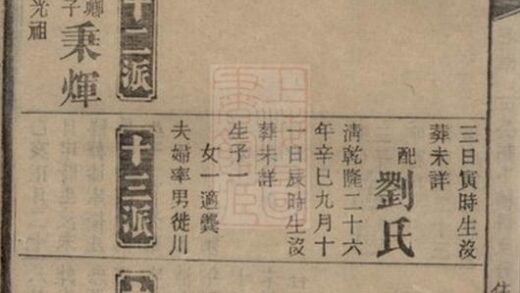 三日寅時生沒
葬未詳
配劉氏
清乾隆二十六
年辛巳九月十
一日辰時生沒
葬未詳
生子一
女一適龔
夫婦率男徙川
十三派
十二派
秉煇
光祖